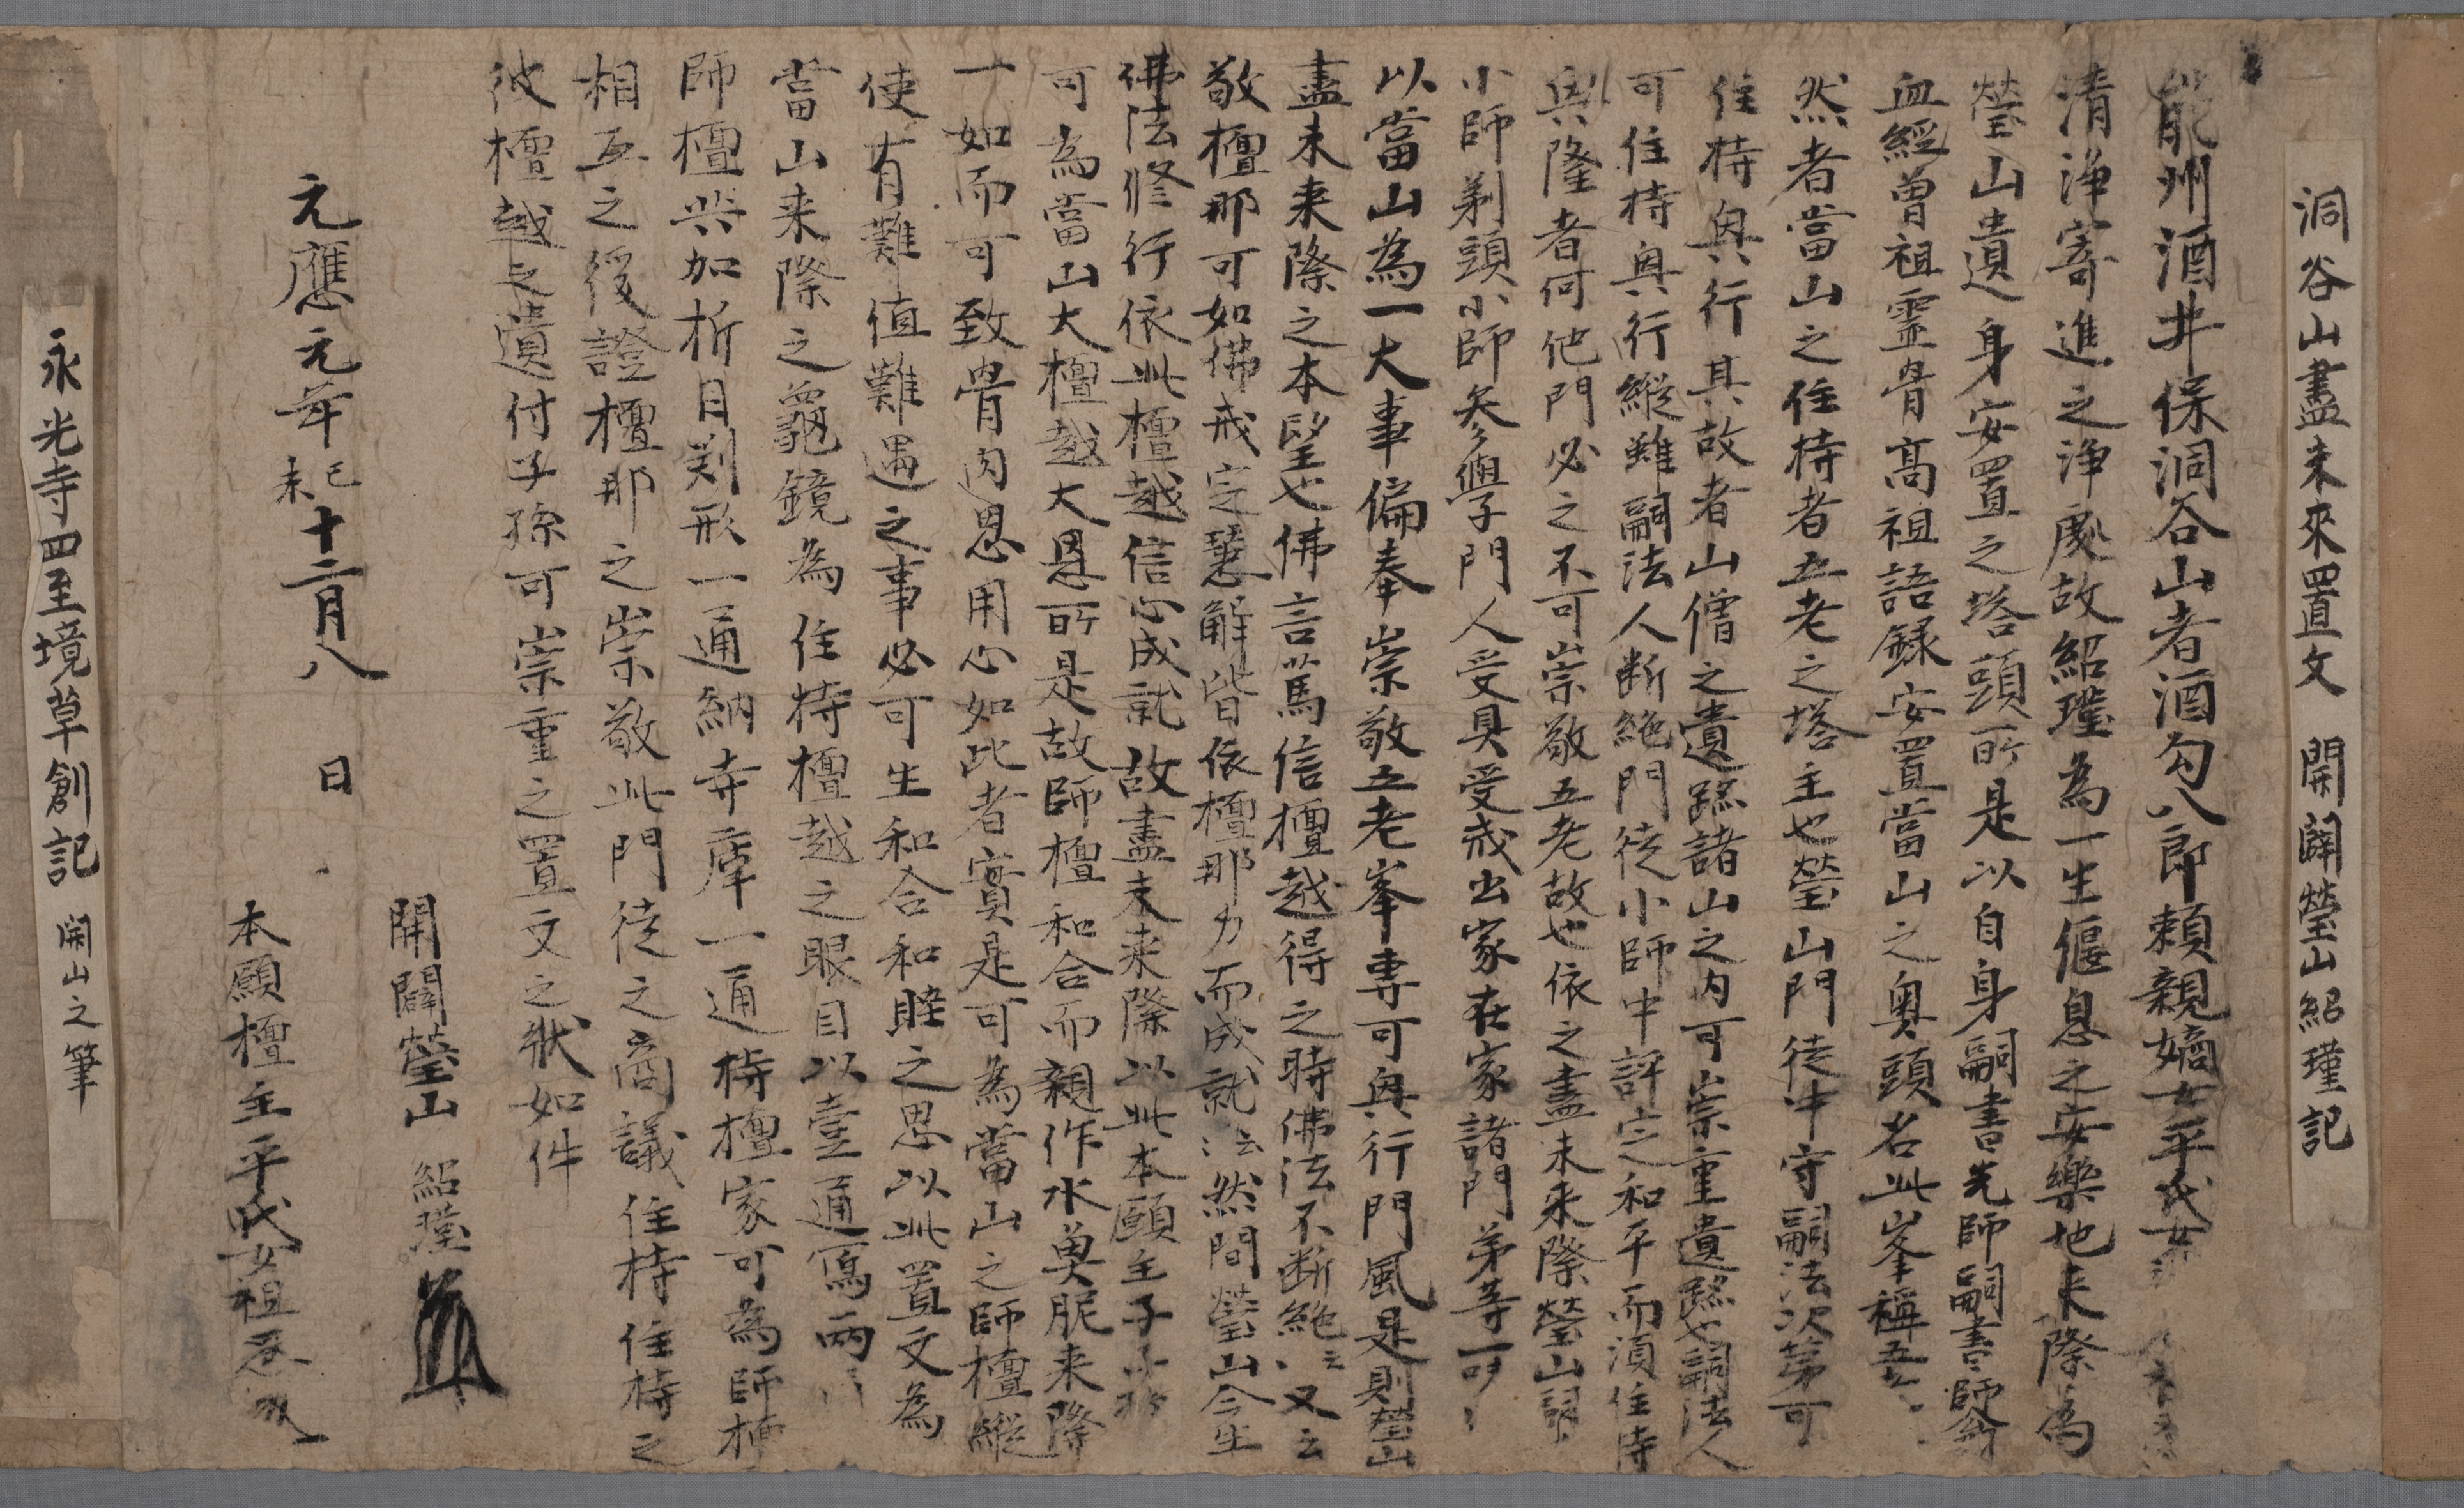 洞谷山盡未來置文　開闢瑩山紹瑾記
能州酒井保洞谷山者酒勾八郎頼親嫡女平氏女
清浄寄進之浄處故紹瑾為一生偃息之安樂地来際為
瑩山遺身安置之塔頭所是以自身嗣書先師嗣書師翁
血經曽祖霊骨髙祖語録安置當山之奥頭名此峯稱五
然者當山之住持者五老之塔主也瑩山門徒中守嗣法次第可
住持興行其故者山僧之遺跡諸山之内可崇重遺跡也嗣法人
可住持興行縦雖嗣法人断絶門徒小師中評定和平而須住持
興隆者何他門必之不可崇敬五老故也依之盡未来際瑩山嗣
小師剃頭小師参學門人受具受戒出家在家諸門弟等一
以當山為一大事偏奉崇敬五老峯専可興行門風是則瑩山
盡未来際之本望也佛言篤信檀越得之時佛法不断絶云又云
敬檀那可如佛戒定慧解皆依檀那力而成就云然間瑩山今生
佛法修行依此檀越信心成就故盡未来際以此本願主子子孫
可為當山大檀越大恩所是故師檀和合而親作水魚昵来際
一如而可致骨肉思用心如此者實是可為當山之師檀縦
使有難値難遇之事必可生和合和睦之思以此置文為
當山来際之龜鏡為住持檀越之眼目以壹通寫両
師檀共加析目判形一通納寺庫一通持檀家可為師檀
相互之後證檀那之崇敬此門徒之商議住持住持之
彼檀越之遺付子孫可崇重之置文之状如件
開闢瑩山　紹瑾
元應元年己未十二月八　日
本願檀主平氏女祖忍
永光寺四至境草創記　開山之筆